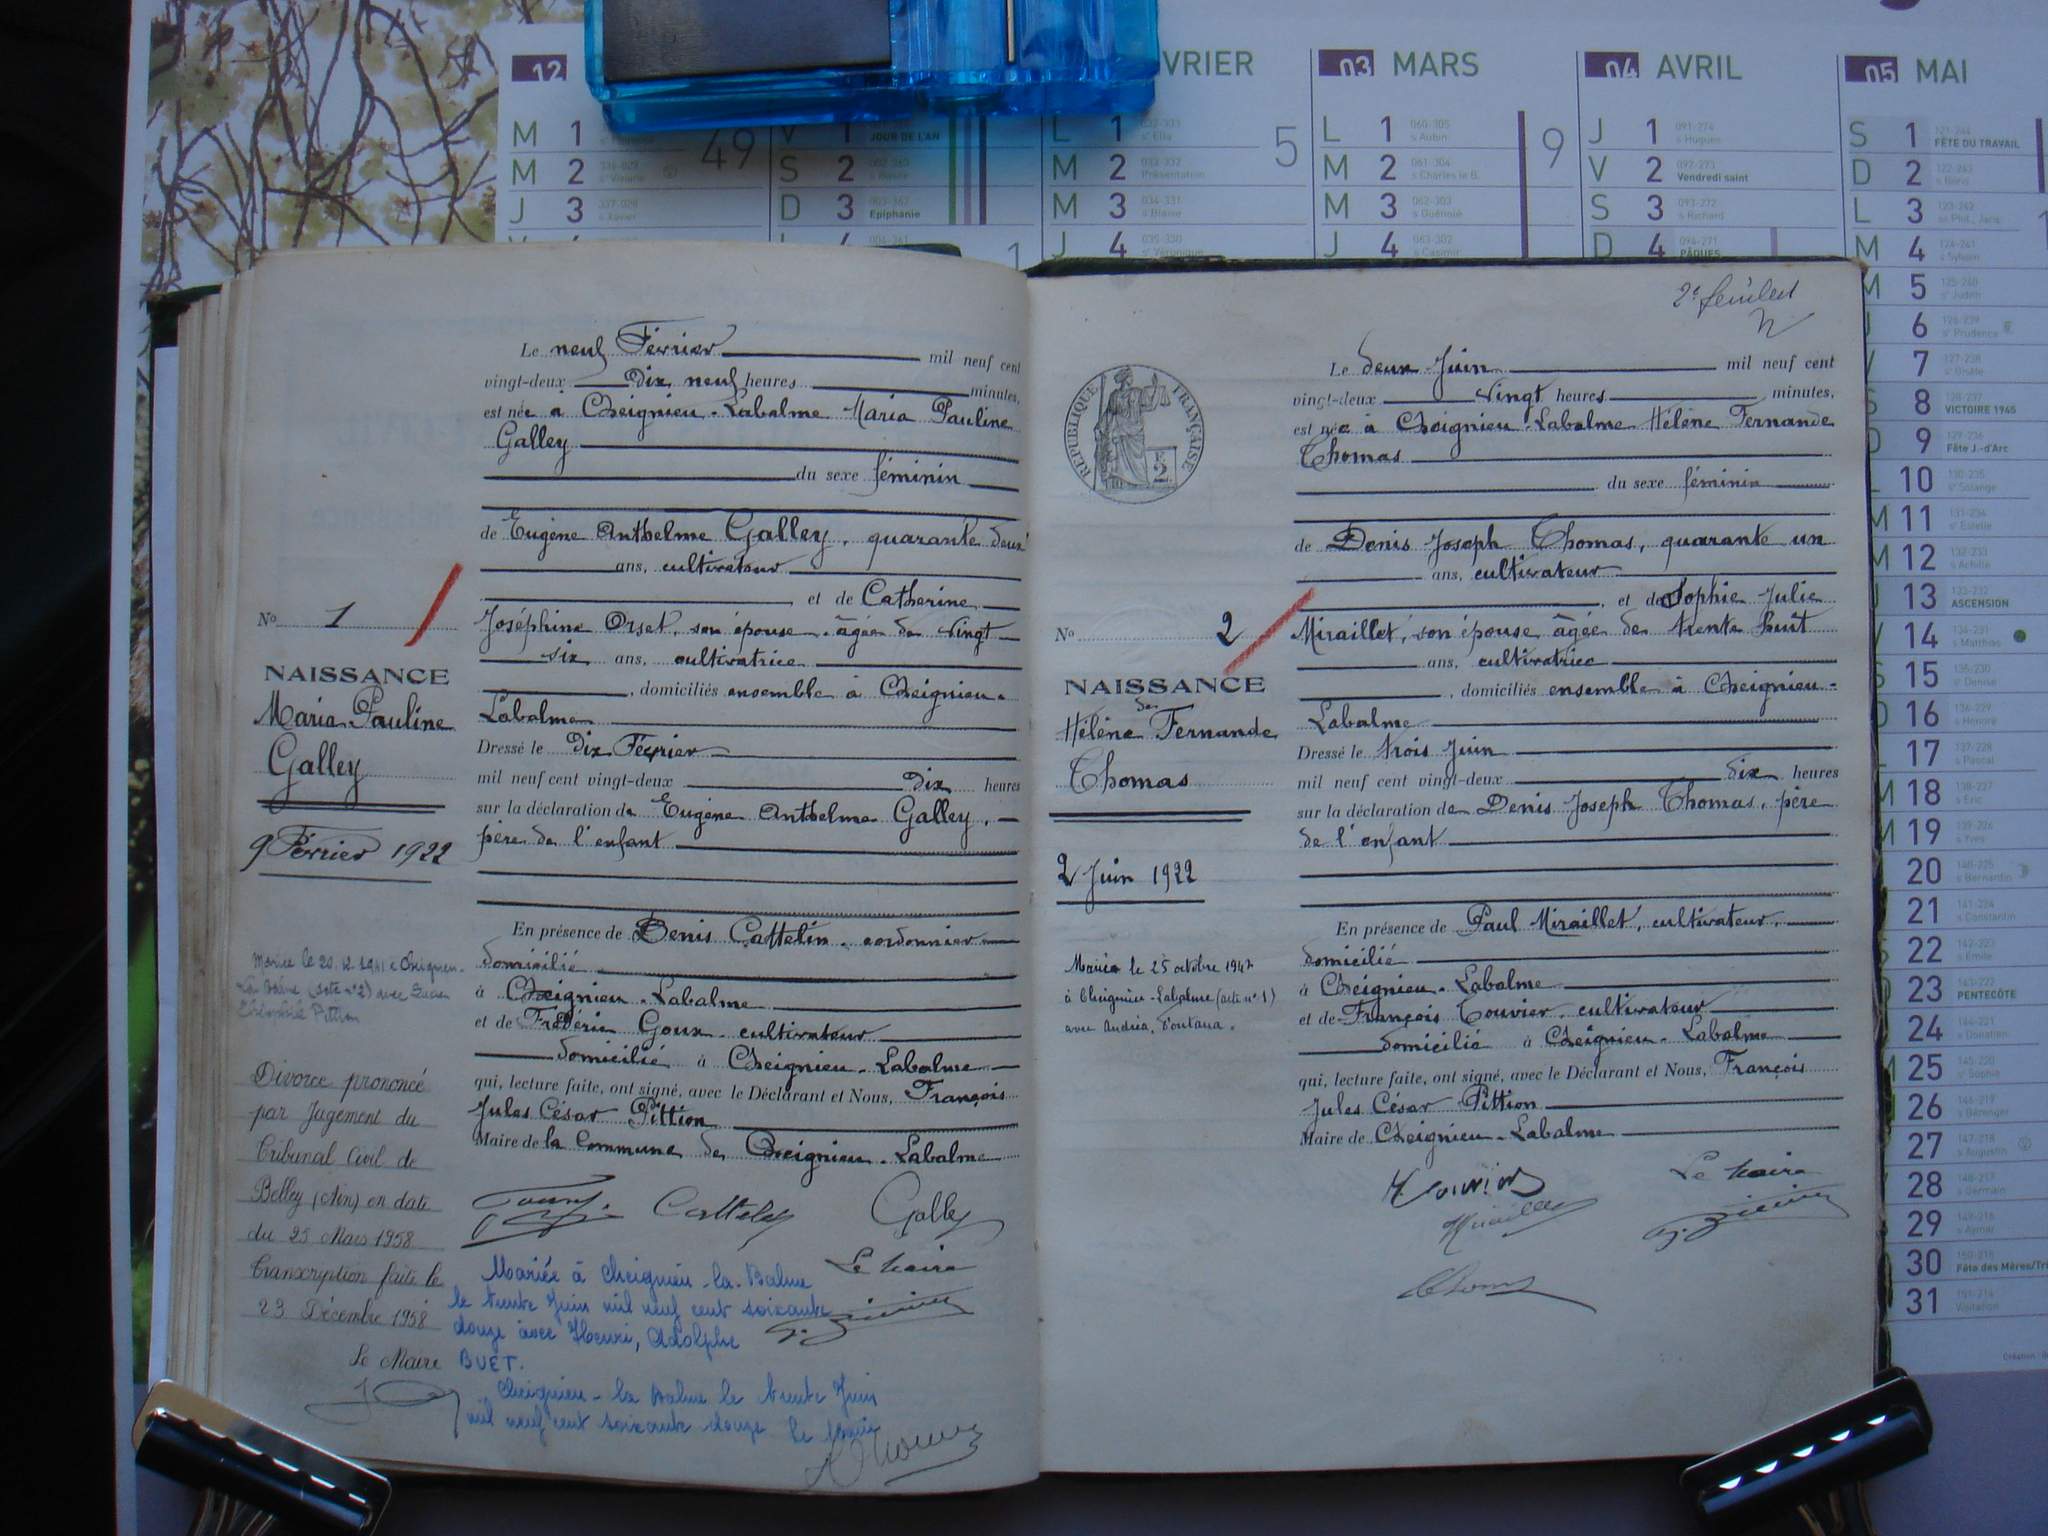 12
VRIER
03 MARS
04 AVRIL
05 MAI
M 1
49
1 JOUR DE L'AN
L 1
5
L 1 060-305 s Aubin
9
J 1 091-274 s Hugues
S 1 121-244 FÊTE DU TRAVAIL
M 2
S 2
M 2 Présentation
M 2 061-304 s Charles le B.
V 2 092-273 Vendredi saint
D 2
J 3 s Xavier
D 3 Epiphanie
M 3 034-331 s Blaise
M 3 062-303 s Guénolé
S 3 093-272 s Richard
L 3
1
J 4 035-330 se Véronique
J 4 063-302 s Casimir
D 4 094-271 PÂQUES
M 4 124-241 s Sylvain
M 5 se Judith
J 6 se Prudence
7
8 VICTOIRE 1945
9 Fête J.-d'Arc
10 se Solange
M 11 se Estelle
M 12 s Achille
J 13 ASCENSION
14 s Matthias
15 se Denise
16 s Honoré
17 s Pascal
M 18 s Eric
M 19 s Yves
20 s Bernardin
21 s Constantin
22 s Emile
23 PENTECÔTE
24 s Donatien
25 se Sophie
26 s Bérenger
27 s Augustin
28 s Germain
29 s Aymar
30 Fête des Mères/Tri
31 Visitation
Le neuf Février mil neuf cent
vingt-deux dix neuf heures minutes,
est née à Cheignieu-Labalme Maria Pauline
Galley
du sexe féminin
de Eugène Anthelme Galley, quarante deux
ans, cultivateur
et de Catherine
Joséphine Orset, son épouse, âgée de vingt
six ans, cultivatrice
, domiciliés ensemble à Cheignieu-
Labalme
Dressé le dix Février
mil neuf cent vingt-deux dix heures
sur la déclaration de Eugène Anthelme Galley,
père de l'enfant
En présence de Denis Cattelin, cordonnier
domicilié
à Cheignieu-Labalme
et de Frédéric Goux, cultivateur
domicilié à Cheignieu-Labalme
qui, lecture faite, ont signé, avec le Déclarant et Nous, François
Jules César Pittion
Maire de la Commune de Cheignieu-Labalme
Cattelin Galley
Le Maire
No 1
NAISSANCE
Maria Pauline
Galley
9 Février 1922
Mariée le 20.12.1941 à Cheignieu-
La Balme (acte n°2) avec Lucien
Théophile Pittion
Divorce prononcé
par Jugement du
Tribunal Civil de
Belley (Ain) en date
du 25 Mars 1958
Transcription faite le
23 Décembre 1958
Le Maire
Mariée à Cheignieu-la-Balme
le trente Juin mil neuf cent soixante
douze avec Henri, Adolphe
BUET.
Cheignieu-la Balme le trente Juin
mil neuf cent soixante douze le Maire
2e feuillet
RÉPUBLIQUE FRANÇAISE
2
No 2
NAISSANCE
de
Hélène Fernande
Thomas
2 Juin 1922
Mariée le 25 octobre 1947
à Cheignieu-Labalme (acte n° 1)
avec Andréa, Fontana.
Le deux Juin mil neuf cent
vingt-deux vingt heures minutes,
est née à Cheignieu-Labalme Hélène Fernande
Thomas
du sexe féminin
de Denis Joseph Thomas, quarante un
ans, cultivateur
et de Sophie Julie
Miraillet, son épouse âgée de trente huit
ans, cultivatrice
, domiciliés ensemble à Cheignieu-
Labalme
Dressé le trois Juin
mil neuf cent vingt-deux dix heures
sur la déclaration de Denis Joseph Thomas, père
de l'enfant
En présence de Paul Miraillet, cultivateur,
domicilié
à Cheignieu-Labalme
et de François Touvier, cultivateur
domicilié à Cheignieu-Labalme
qui, lecture faite, ont signé, avec le Déclarant et Nous, François
Jules César Pittion
Maire de Cheignieu-Labalme
Touvier Le Maire
Miraillet
Thomas